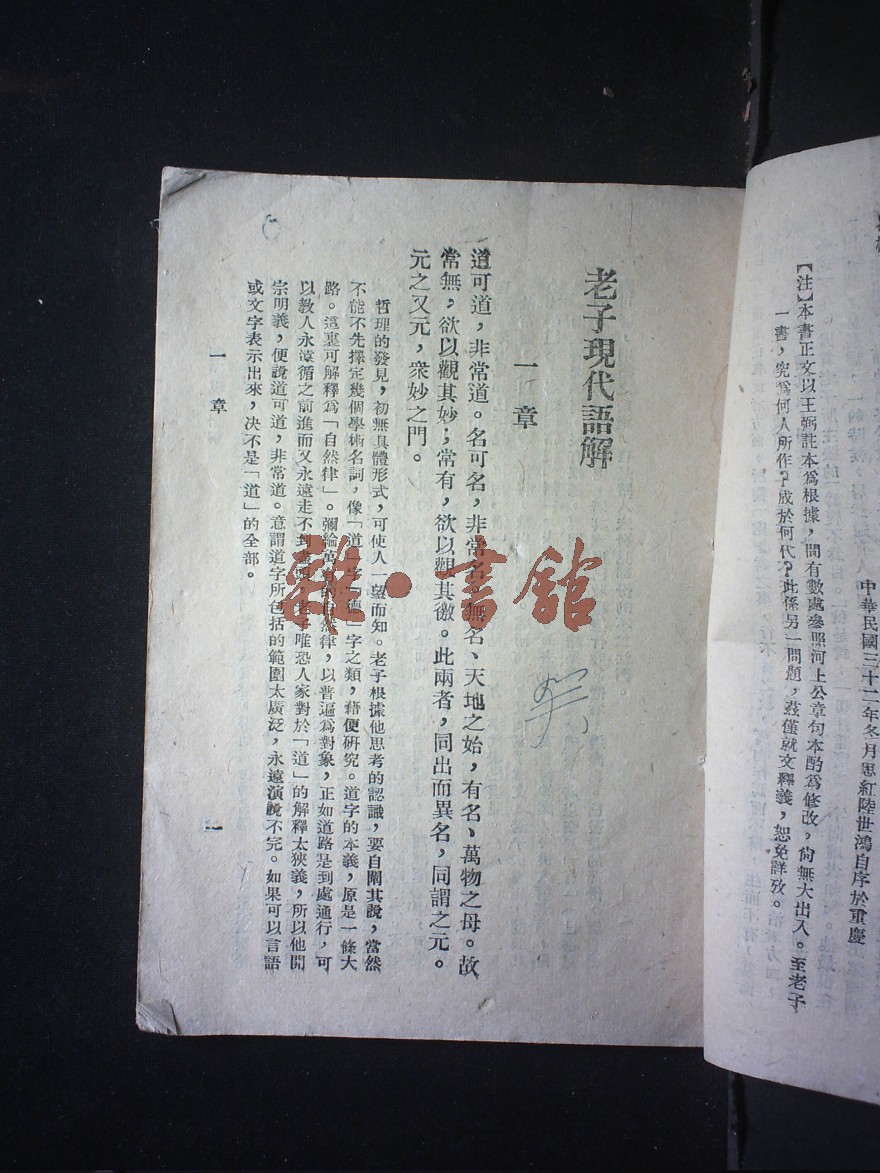 中華民國三十二年冬月思紅陸世鴻自序於重慶
【注】本書正文以王弼註本為根據，間有數處參照河上公章句本酌為修改，尙無大出入。至老子
一書，究為何人所作？成於何代？此係另一問題，茲僅就文釋義，恕免詳攷。
老子現代語解
一章
道可道，非常道。名可名，非常名。無名、天地之始，有名、萬物之母。故
常無，欲以觀其妙；常有，欲以觀其徼。此兩者，同出而異名，同謂之元。
元之又元，衆妙之門。
哲理的發見，初無具體形式，可使人一望而知。老子根據他思考的認識，要自闡其說，當然
不能不先擇定幾個學術名詞，像「道」字「德」字之類，藉便硏究。道字的本義，原是一條大
路。這裏可解釋為「自然律」。彌綸萬有的自然律，以普遍為對象，正如道路是到處通行，可
以敎人永遠循之前進而又永遠走不到盡頭。老子唯恐人家對於「道」的解釋太狹義，所以他開
宗明義，便說道可道，非常道。意謂道字所包括的範圍太廣泛，永遠演說不完。如果可以言語
或文字表示出來，決不是「道」的全部。
一章
一
雜·書館